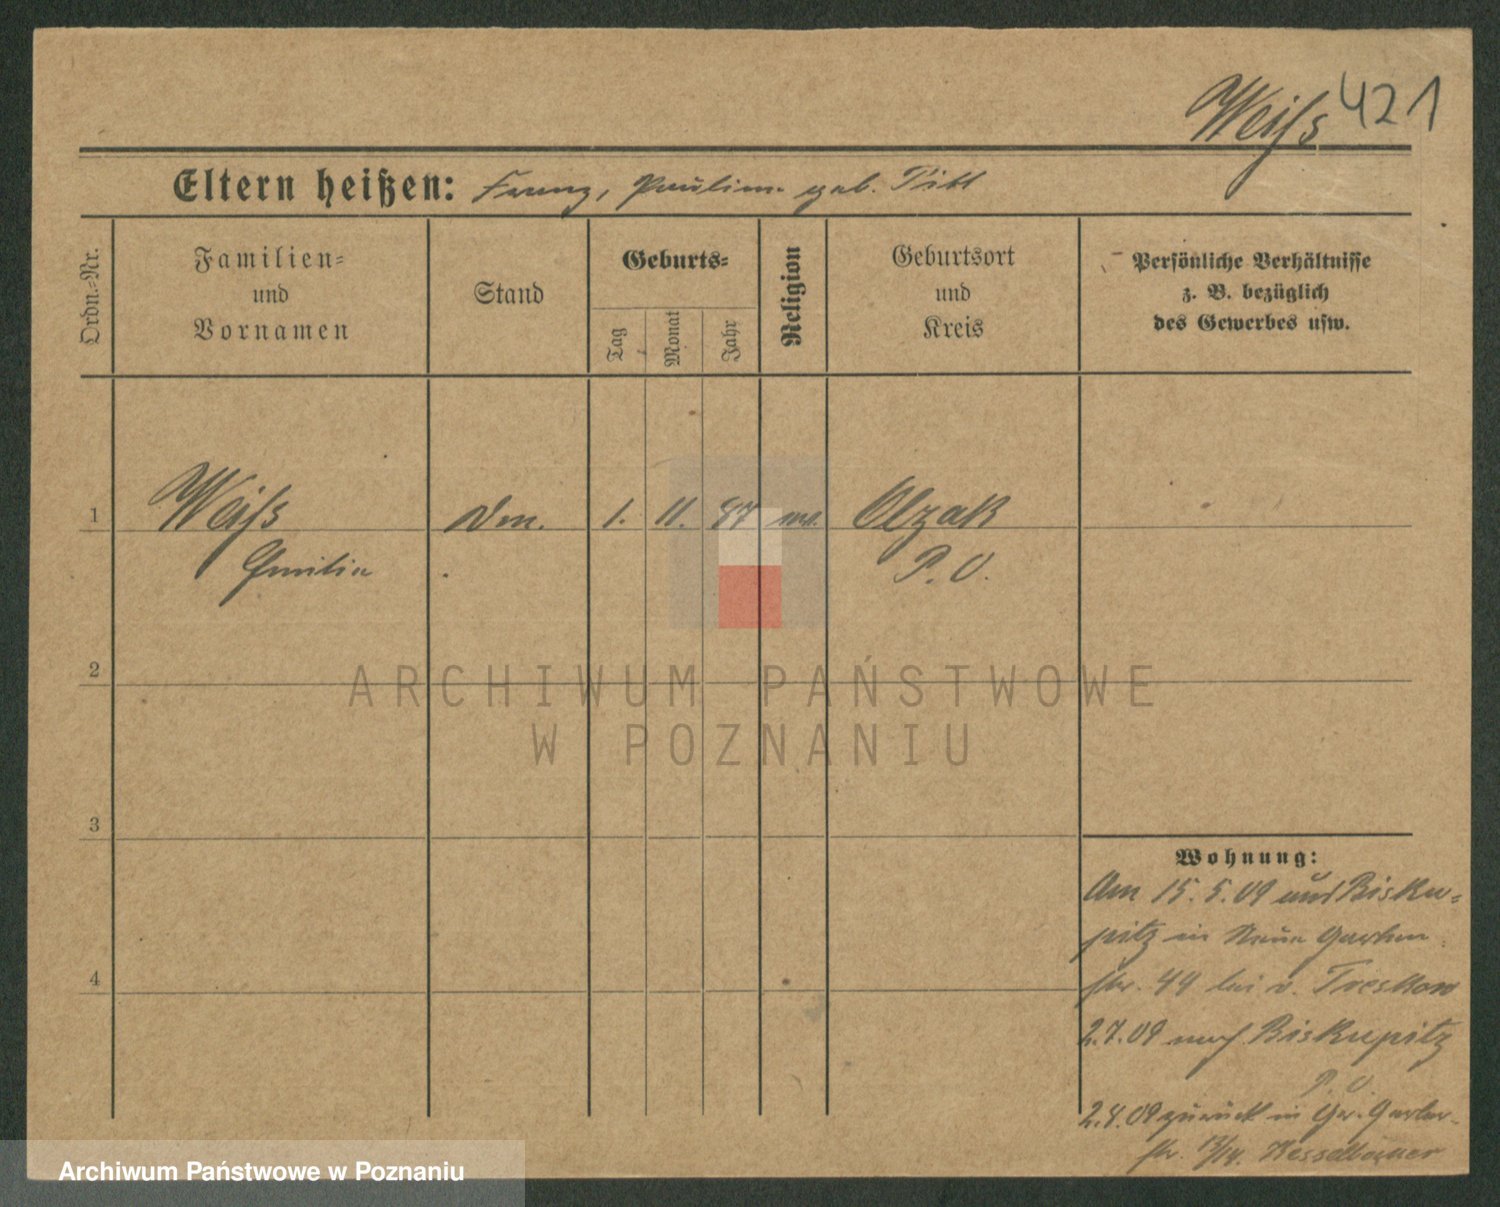 Weiß 421
Eltern heißen: Franz, Pauline geb. Titt
Ordn.-Nr.
Familien-
und
Vornamen
Stand
Geburts-
Tag
Monat
Jahr
Religion
Geburtsort
und
Kreis
Persönliche Verhältnisse
z. B. bezüglich
des Gewerbes usw.
1 Weiß 1. 11. 87 Olzak
Emilie P. O.
2
3
4
ARCHIWUM PAŃSTWOWE
W POZNANIU
Wohnung:
Am 15. 5. 09 aus Bisku-
pitz in Neue Garten
str. 44 bei v. Treskow
2.7.09 nach Biskupitz
P. O.
09 zurück in Gr. Garten-
str.
Archiwum Państwowe w Poznaniu